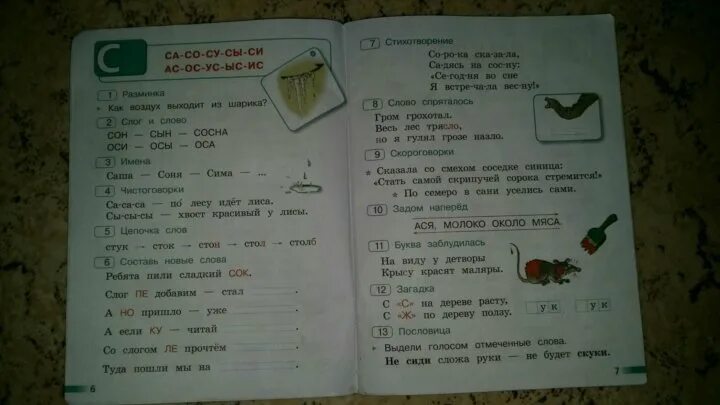 С
СА-СО-СУ-СЫ-СИ
АС-ОС-УС-ЫС-ИС
1 Разминка
Как воздух выходит из шарика?
2 Слог и слово
СОН — СЫН — СОСНА
ОСИ — ОСЫ — ОСА
3 Имена
Саша — Соня — Сима — ...
4 Чистоговорки
Са-са-са — по лесу идёт лиса.
Сы-сы-сы — хвост красивый у лисы.
5 Цепочка слов
стук → сток → стон → стол → столб
6 Составь новые слова
Ребята пили сладкий СОК.
Слог ПЕ добавим — стал
А НО пришло — уже
А если КУ — читай
Со слогом ЛЕ прочтём
Туда пошли мы на
6
7 Стихотворение
Со-ро-ка ска-за-ла,
Са-дясь на сос-ну:
«Се-год-ня во сне
Я встре-ча-ла вес-ну!»
8 Слово спряталось
Гром грохотал.
Весь лес трясло,
но я гулял грозе назло.
9 Скороговорки
* Сказала со смехом соседке синица:
«Стать самой скрипучей сорока стремится!»
* По семеро в сани уселись сами.
10 Задом наперёд
АСЯ, МОЛОКО ОКОЛО МЯСА.
11 Буква заблудилась
На виду у детворы
Крысу красят маляры.
12 Загадка
С «С» на дереве расту,
С «Ж» по дереву ползу.
ук ук
13 Пословица
Выдели голосом отмеченные слова.
Не сиди сложа руки — не будет скуки.
7